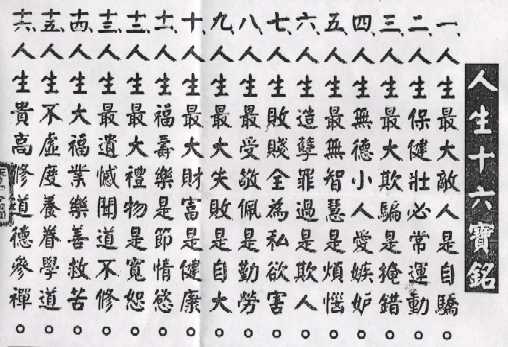 人生十六寶銘
一、人生最大敵人是自驕。
二、人生保健壯必常運動。
三、人生最大欺騙是掩錯。
四、人生無德小人愛嫉妒。
五、人生最無智慧是煩惱。
六、人生造孽罪過是欺人。
七、人生敗賤全為私欲害。
八、人生最受敬佩是勤勞。
九、人生最大失敗是自大。
十、人生最大財富是健康。
十一、人生福壽樂是節情慾。
十二、人生最大禮物是寬恕。
十三、人生最遺憾聞道不修。
十四、人生大福業樂善救苦。
十五、人生不虛度養眷學道。
十六、人生貴高修道德參禪。